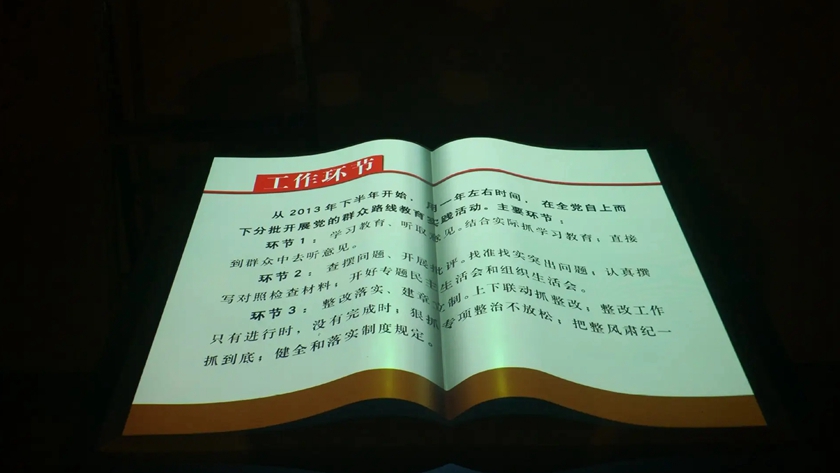 工作环节
从2013年下半年开始，用一年左右时间，在全党自上而
下分批开展党的群众路线教育实践活动。主要环节：
环节1：学习教育、听取意见。结合实际抓学习教育；直接
到群众中去听意见。
环节2：查摆问题、开展批评。找准找实突出问题；认真撰
写对照检查材料；开好专题民主生活会和组织生活会。
环节3：整改落实、建章立制。上下联动抓整改；整改工作
只有进行时，没有完成时；狠抓专项整治不放松；把整风肃纪一
抓到底；健全和落实制度规定。